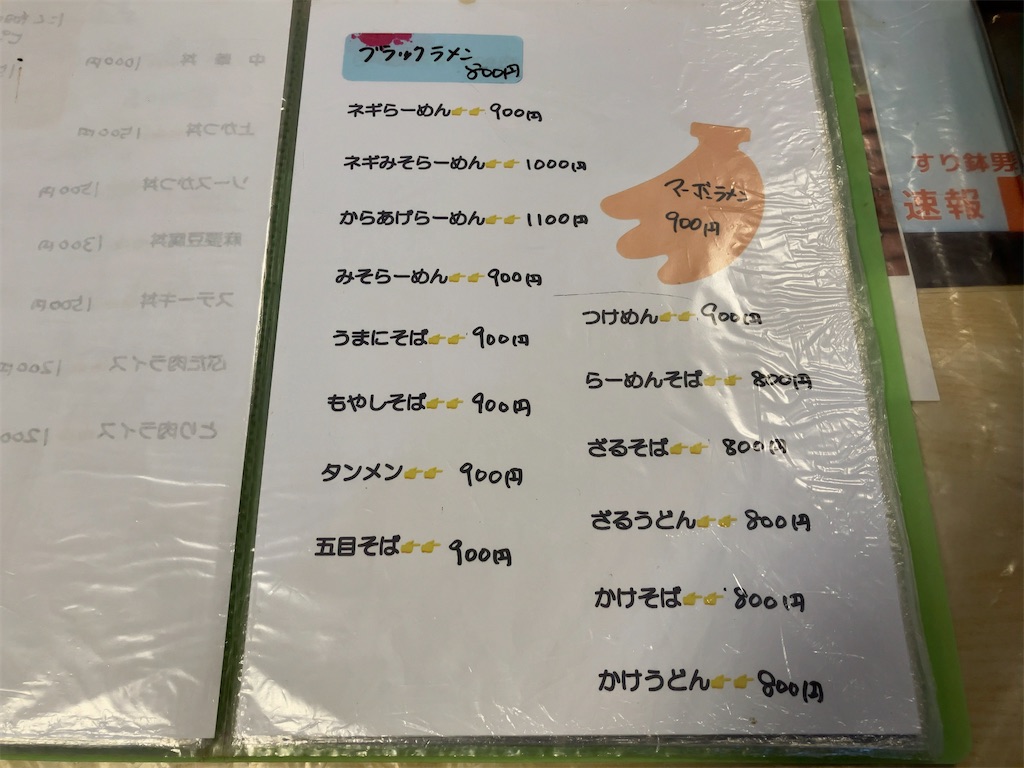 ブラックラメン
800円
ネギらーめん👉👉900円
ネギみそらーめん👉👉1000円
からあげらーめん👉👉1100円
みそらーめん👉👉900円
うまにそば👉👉900円
もやしそば👉👉900円
タンメン👉👉900円
五目そば👉👉900円
マーボーラメン
900円
つけめん👉👉900円
らーめんそば👉👉800円
ざるそば👉👉800円
ざるうどん👉👉800円
かけそば👉👉800円
かけうどん👉👉800円
中華丼 1000円
上かつ丼 1500円
ソースかつ丼 1500円
麻婆豆腐丼 1300円
ステーキ丼 1500円
ぶた肉ライス 1200円
とり肉ライス 1200
すり鉢男
速報